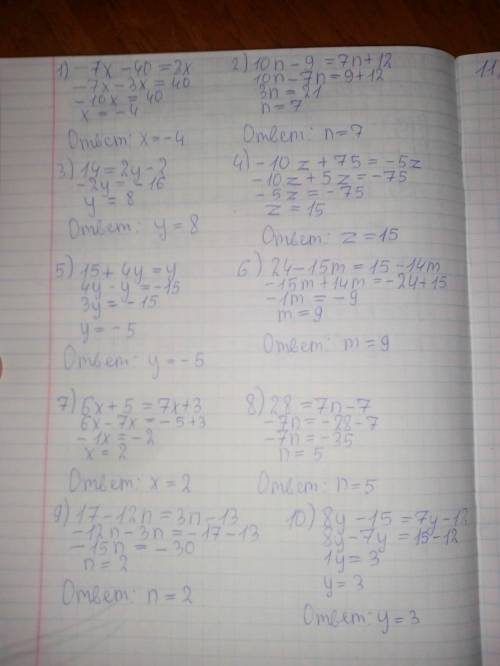 1) -7x - 40 = 3x
-7x - 3x = 40
-10x = 40
x = -4
Ответ: x = -4
2) 10n - 9 = 7n + 12
10n - 7n = 9 + 12
3n = 21
n = 7
Ответ: n = 7
3) 14 = 2y - 2
-2y = -16
y = 8
Ответ: y = 8
4) -10z + 75 = -5z
-10z + 5z = -75
-5z = -75
z = 15
Ответ: z = 15
5) 15 + 4y = y
4y - y = -15
3y = -15
y = -5
Ответ: y = -5
6) 24 - 15m = 15 - 14m
-15m + 14m = -24 + 15
-1m = -9
m = 9
Ответ: m = 9
7) 6x + 5 = 7x + 3
6x - 7x = -5 + 3
-1x = -2
x = 2
Ответ: x = 2
8) 28 = 7n - 7
-7n = -28 - 7
-7n = -35
n = 5
Ответ: n = 5
9) 17 - 12n = 3n - 13
-12n - 3n = -17 - 13
-15n = -30
n = 2
Ответ: n = 2
10) 8y - 15 = 7y - 12
8y - 7y = 15 - 12
1y = 3
y = 3
Ответ: y = 3
11